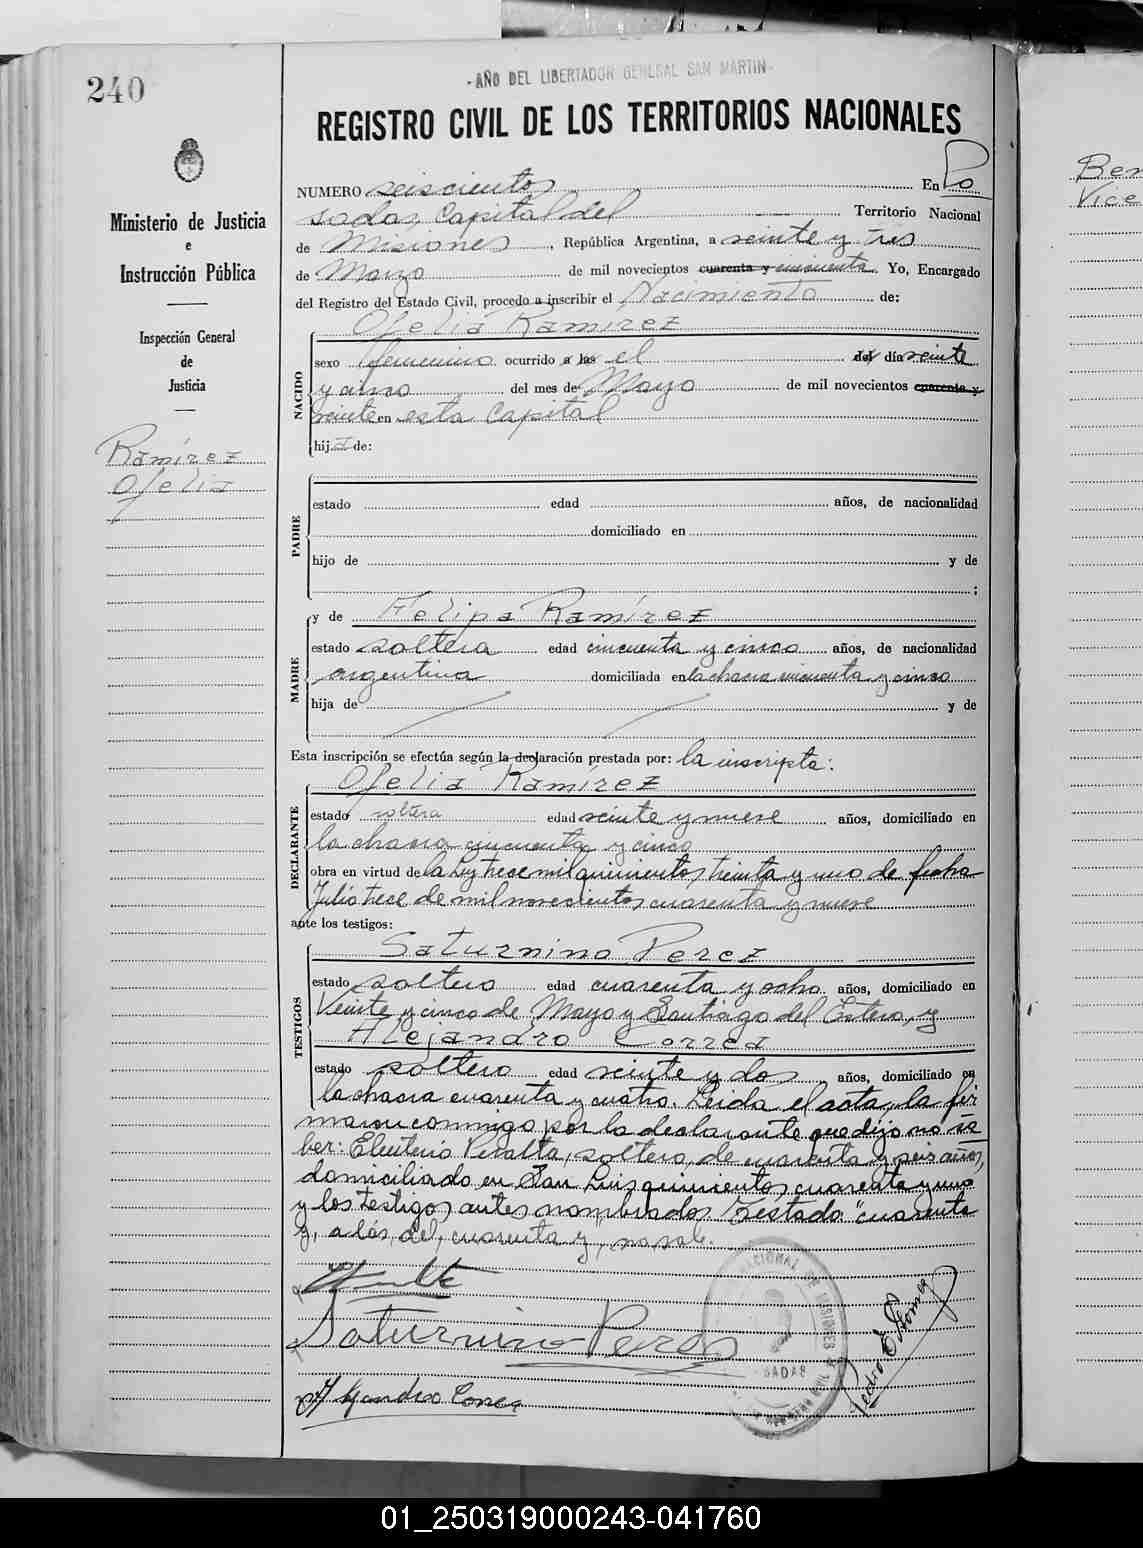 240
- AÑO DEL LIBERTADOR GENERAL SAN MARTIN -
REGISTRO CIVIL DE LOS TERRITORIOS NACIONALES
Ministerio de Justicia
e
Instrucción Pública
Inspección General
de
Justicia
Ramírez
Ofelia
NUMERO seiscientos En Po
sadas, Capital del Territorio Nacional
de Misiones, República Argentina, a veinte y tres
de Marzo de mil novecientos cuarenta y cincuenta Yo, Encargado
del Registro del Estado Civil, procedo a inscribir el Nacimiento de:
Ofelia Ramírez
NACIDO
sexo femenino ocurrido a las el del día veinte
y cinco del mes de Mayo de mil novecientos cuarenta y
veinte en esta Capital
hija de:
PADRE
estado edad años, de nacionalidad
domiciliado en
hijo de y de
;
MADRE
y de Felipa Ramírez
estado soltera edad cincuenta y cinco años, de nacionalidad
argentina domiciliada en la chacra cincuenta y cinco
hija de y de
Esta inscripción se efectúa según la declaración prestada por: la inscripta:
DECLARANTE
Ofelia Ramírez
estado soltera edad veinte y nueve años, domiciliado en
la chacra cincuenta y cinco
obra en virtud de la Ley trece mil quinientos treinta y uno de fecha
Julio trece de mil novecientos cuarenta y nueve
ante los testigos:
TESTIGOS
Saturnino Perez
estado soltero edad cuarenta y ocho años, domiciliado en
Veinte y cinco de Mayo y Santiago del Estero, y
Alejandro Correa
estado soltero edad veinte y dos años, domiciliado en
la chacra cuarenta y cuatro. Leida el acta, la fir
maron conmigo por la declarante que dijo no sa
ber: Eleuterio Peralta, soltero, de cuarenta y seis años,
domiciliado en San Luis quinientos cuarenta y uno
y los testigos antes nombrados. Testado "cuarenta
y, a las, del, cuarenta y, no vale.
Saturnino Perez
Alejandro Correa
01_250319000243-041760